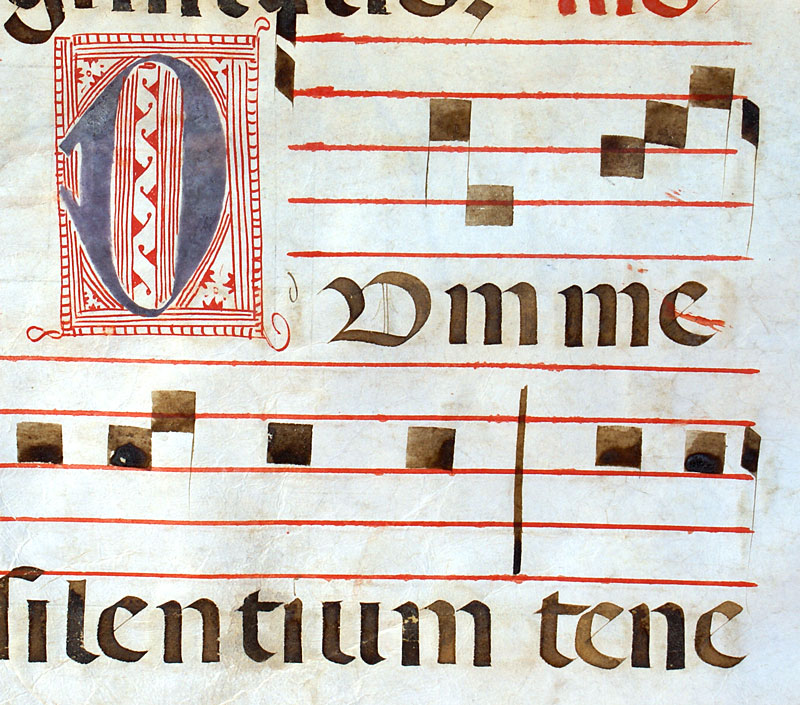 DVm me
silentium tene